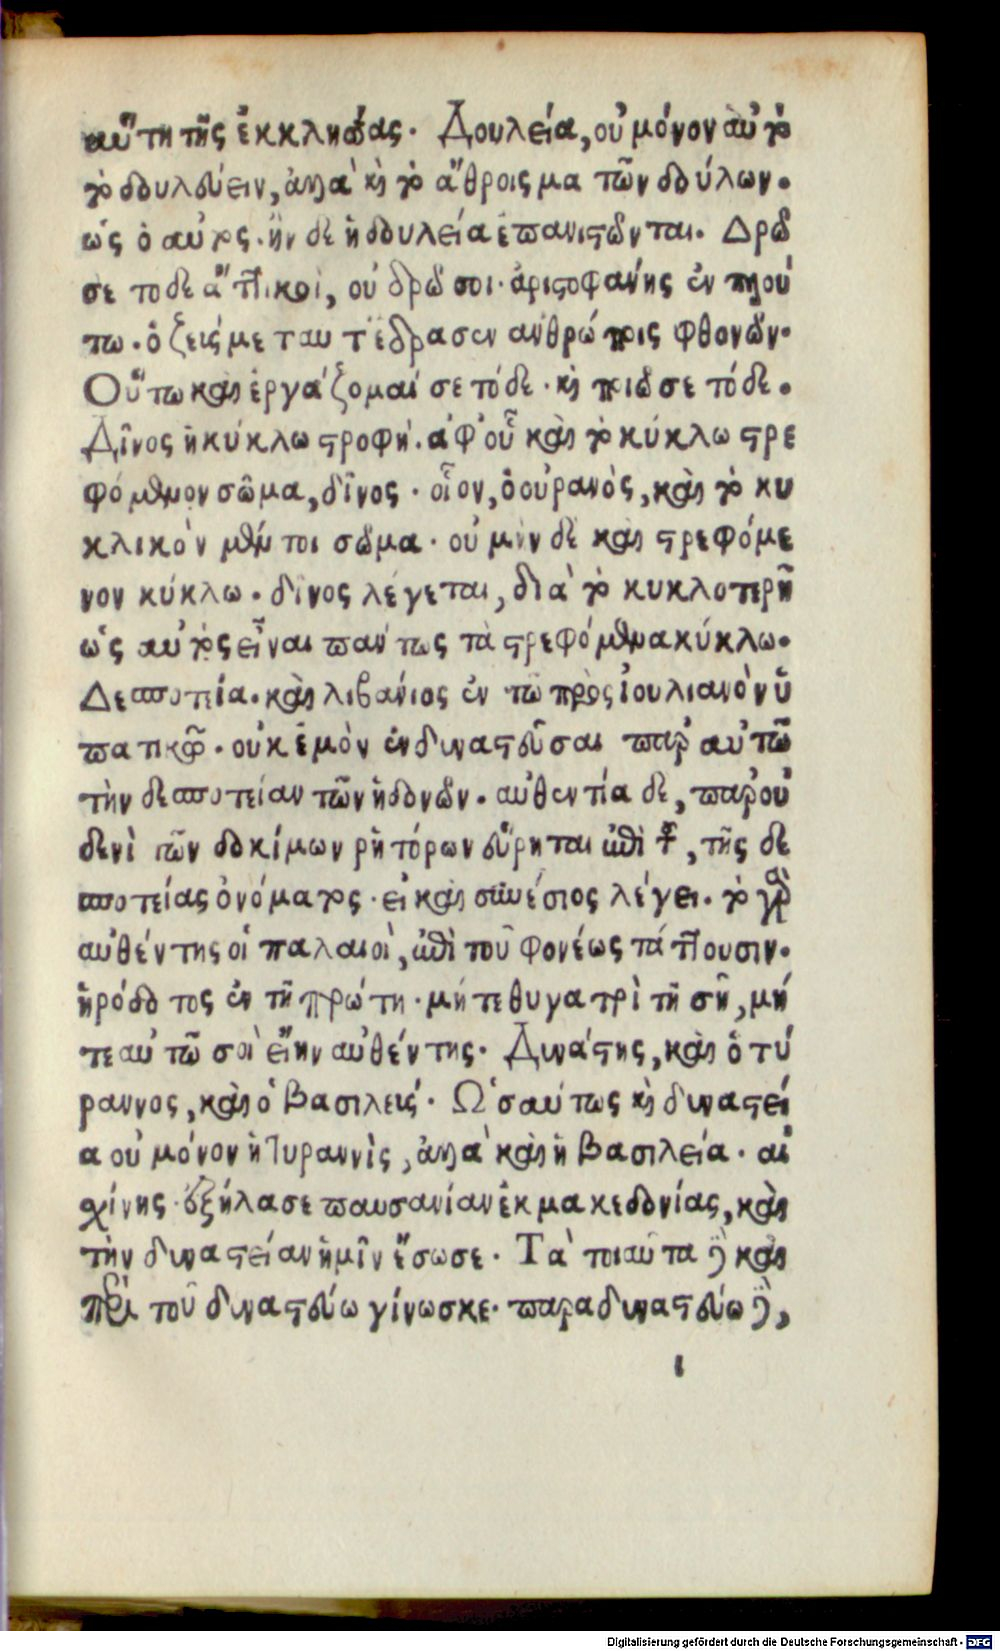 αὕτη τῆς ἐκκλησίας. Δουλεία, οὐ μόνον αὐτὸ
τὸ δουλεύειν, ἀλλὰ καὶ τὸ ἄθροισμα τῶν δούλων.
ὡς ὁ αὐτός. ἢν δὲ ἡ δουλεία ἐπανιστῶνται. Δρῶ
σε τόδε ἀττικοί, οὐ δρῶ σοι. ἀριστοφάνης ἐν πλού
τω. ὁ ζεύς με ταῦτ' ἔδρασεν ἀνθρώποις φθονῶν.
Οὕτω καὶ ἐργάζομαί σε τόδε. καὶ ποιῶ σε τόδε.
Δῖνος ἡ κύκλω στροφή. ἀφ' οὗ καὶ τὸ κύκλω στρε
φόμενον σῶμα, δῖνος. οἷον, ὁ οὐρανός, καὶ τὸ κυ
κλικὸν μέντοι σῶμα. οὐ μὴν δὲ καὶ στρεφόμε
νον κύκλω. δῖνος λέγεται, διὰ τὸ κυκλοτερῆ
ὡς αὐτὸς εἶναι πάντως τὰ στρεφόμενα κύκλω.
Δεσποτεία. καὶ λιβάνιος ἐν τῶ πρὸς ἰουλιανὸν ὑ
πατικῷ. οὐκ ἐμὸν ἐνδυναστεῦσαι παρ' αὐτῶ
τὴν δεσποτείαν τῶν ἡδονῶν. αὐθεντία δὲ, παρ' οὐ
δενὶ τῶν δοκίμων ῥητόρων εὕρηται ἐπὶ τοῦ, τῆς δε
σποτείας ὀνόματος. εἰ καὶ συνέσιος λέγει. τὸ γὰρ
αὐθέντης οἱ παλαιοὶ, ἐπὶ τοῦ φονέως τάττουσιν.
ἡρόδοτος ἐν τῆ πρώτη. μήτε θυγατρὶ τῆ σῆ, μή
τε αὐτῶ σοὶ εἴην αὐθέντης. Δυνάστης, καὶ ὁ τύ
ραννος, καὶ ὁ βασιλεύς. Ὡσαύτως καὶ δυναστεί
α οὐ μόνον ἡ τυραννὶς, ἀλλὰ καὶ ἡ βασιλεία. αἰ
χίνης. ἐξήλασε παυσανίαν ἐκ μακεδονίας, καὶ
τὴν δυναστείαν ἡμῖν ἔσωσε. Τὰ τοιαῦτα δὲ καὶ
περὶ τοῦ δυναστεύω γίνωσκε. παραδυναστεύω δὲ,
ι
Digitalisierung gefördert durch die Deutsche Forschungsgemeinschaft - DFG